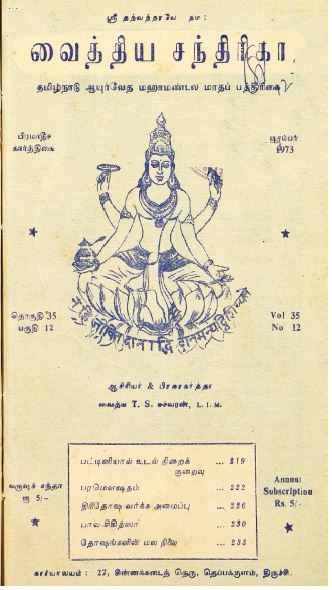 ஸ்ரீ தந்வந்தரயே நம:
வைத்திய சந்திரிகா
தமிழ்நாடு ஆயுர்வேத மஹாமண்டல மாதப் பத்திரிகை
பிரமாதீச
கார்த்திகை
டிசம்பர்
1973
தொகுதி 35
பகுதி 12
Vol 35
No 12
ஆசிரியர் & பிரசுரகர்த்தா
வைத்ய T. S. ஈச்வரன், L. I. M.
பட்டினியால் உடல் நிறைக் ... 219
குறைவு
பரமௌஷதம் ... 222
திரிதோஷ வர்க்க அமைப்பு ... 226
பால சிகித்ஸா ... 230
தோஷங்களின் மல நிலை ... 233
வருஷ சந்தா
ரூ 5/-
Annual
Subscription
Rs. 5/-
காரியாலயம் : 27, சின்னக்கடைத் தெரு, தெப்பக்குளம், திருச்சி.